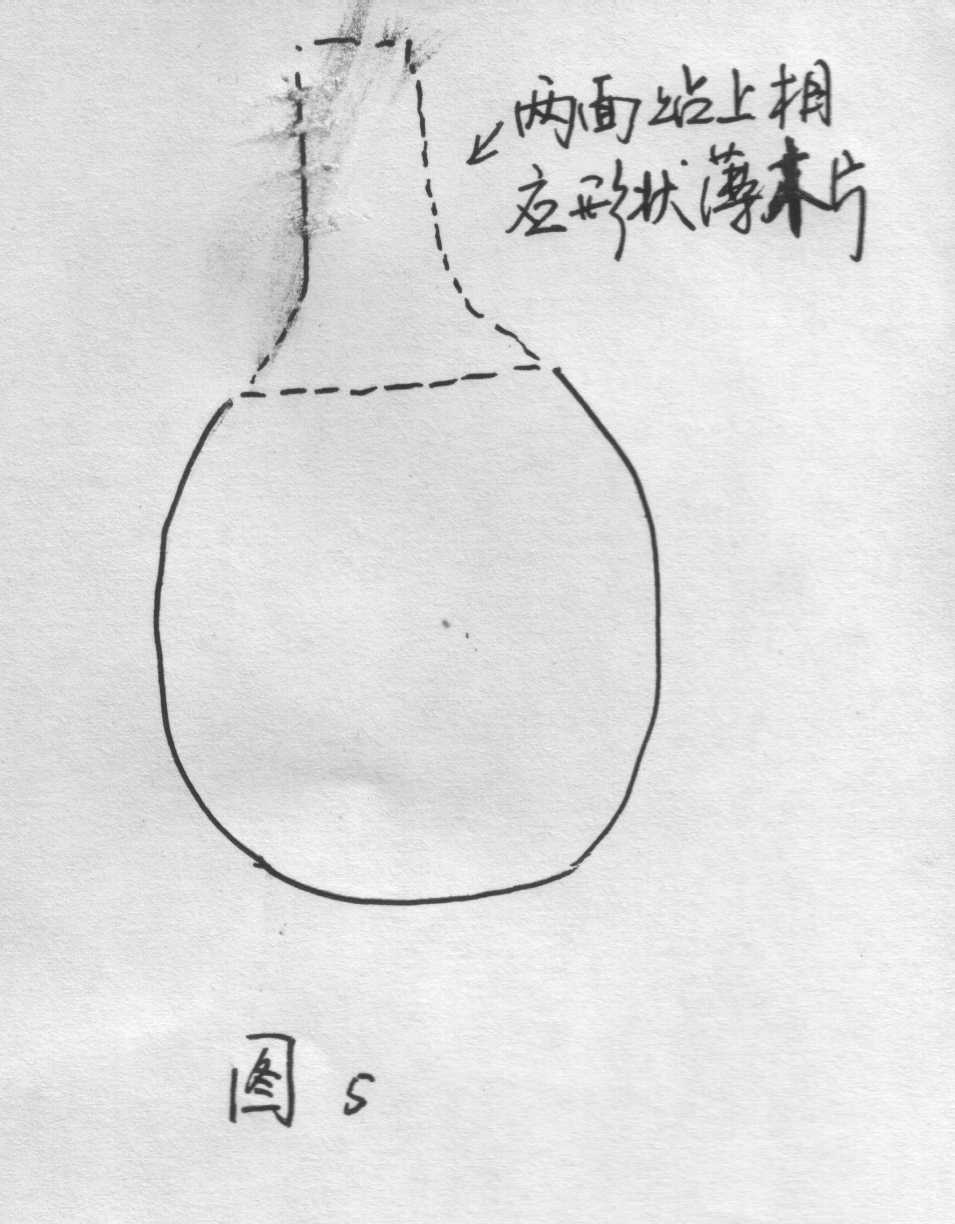 两面沾上相
应形状薄木片
图 5